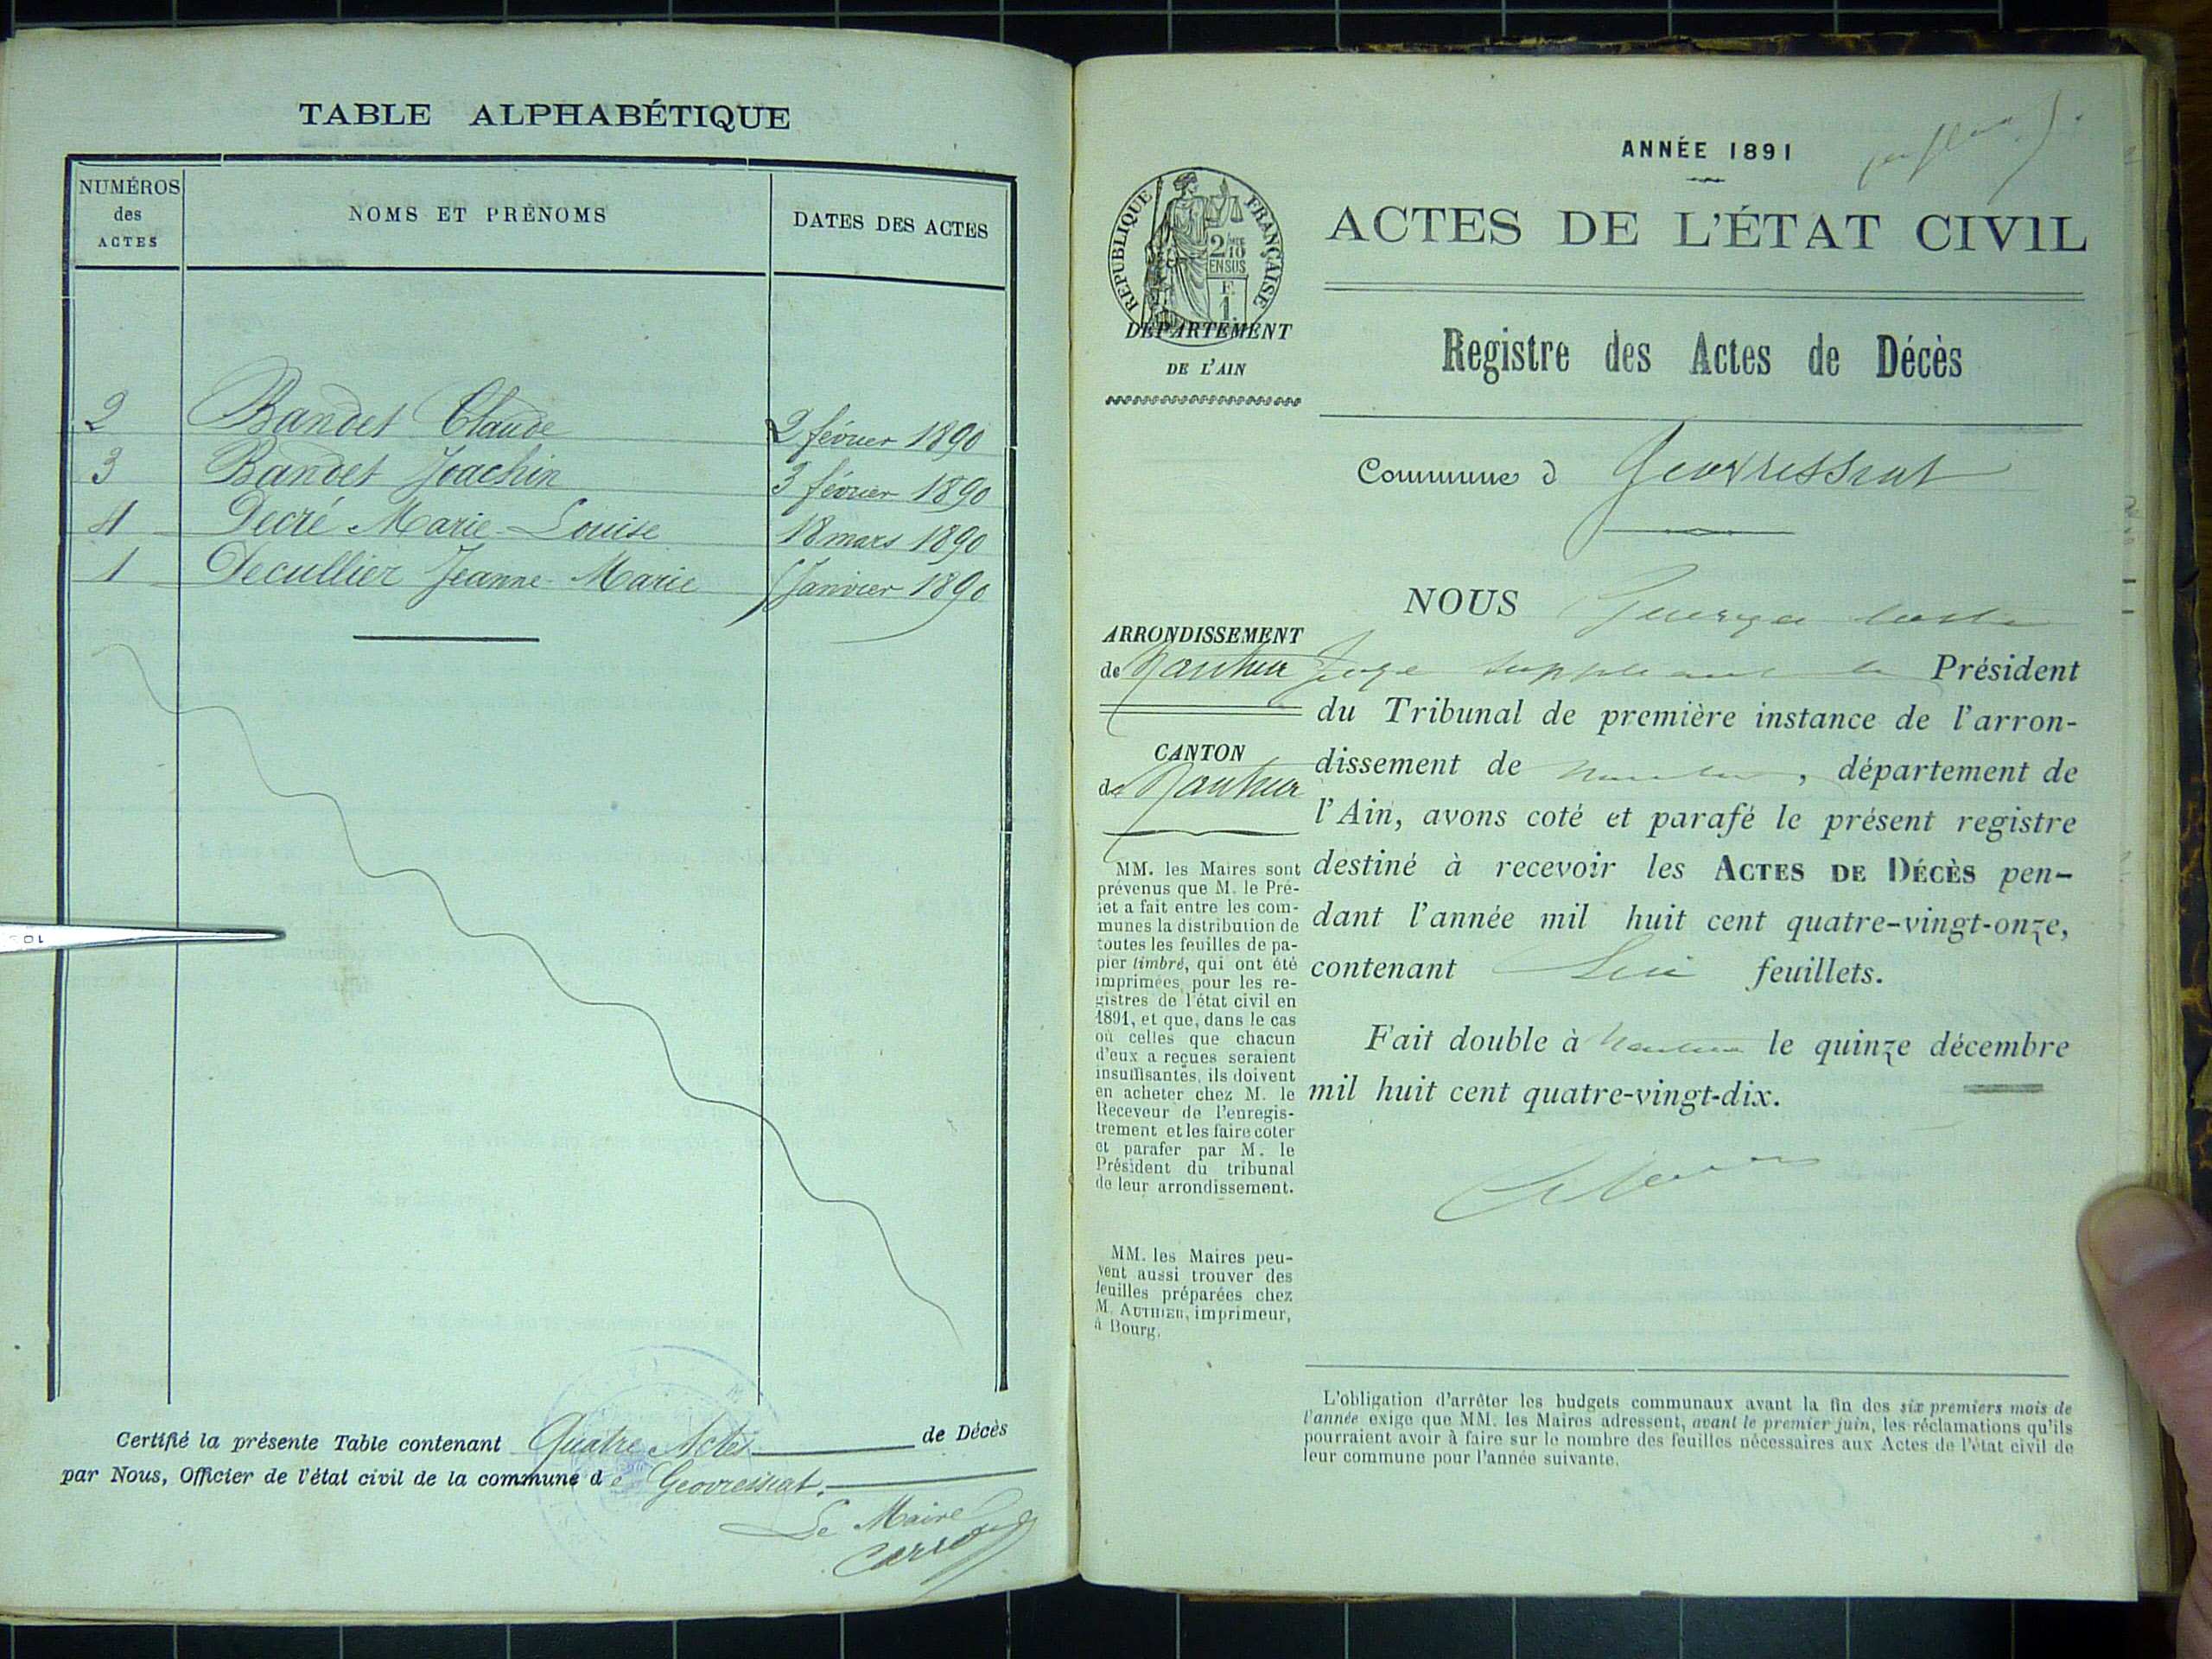 TABLE ALPHABÉTIQUE
NUMÉROS des ACTES
NOMS ET PRÉNOMS
DATES DES ACTES
2 Bandet Claude 2 février 1890
3 Bandet Joachin 3 février 1890
4 Decré Marie-Louise 18 mars 1890
1 Decullier Jeanne-Marie Janvier 1890
Certifié la présente Table contenant Quatre Actes de Décès
par Nous, Officier de l'état civil de la commune de Geovreissiat.
Le Maire
ANNÉE 1891
RÉPUBLIQUE FRANÇAISE
2/10 EN SUS
F. 1.
ACTES DE L'ÉTAT CIVIL
DÉPARTEMENT
DE L'AIN
Registre des Actes de Décès
Commune d Geovressiat
ARRONDISSEMENT
de Nantua
CANTON
de Nantua
MM. les Maires sont
prévenus que M. le Pré-
fet a fait entre les com-
munes la distribution de
toutes les feuilles de pa-
pier timbré, qui ont été
imprimées pour les re-
gistres de l'état civil en
1891, et que, dans le cas
où celles que chacun
d'eux a reçues seraient
insuffisantes, ils doivent
en acheter chez M. le
Receveur de l'enregis-
trement et les faire coter
et parafer par M. le
Président du tribunal
de leur arrondissement.
MM. les Maires peu-
vent aussi trouver des
feuilles préparées chez
M. AUTHIER, imprimeur,
à Bourg.
NOUS
Juge suppléant Président
du Tribunal de première instance de l'arron-
dissement de Nantua, département de
l'Ain, avons coté et parafé le présent registre
destiné à recevoir les ACTES DE DÉCÈS pen-
dant l'année mil huit cent quatre-vingt-onze,
contenant feuillets.
Fait double à Nantua le quinze décembre
mil huit cent quatre-vingt-dix.
L'obligation d'arrêter les budgets communaux avant la fin des six premiers mois de
l'année exige que MM. les Maires adressent, avant le premier juin, les réclamations qu'ils
pourraient avoir à faire sur le nombre des feuilles nécessaires aux Actes de l'état civil de
leur commune pour l'année suivante.